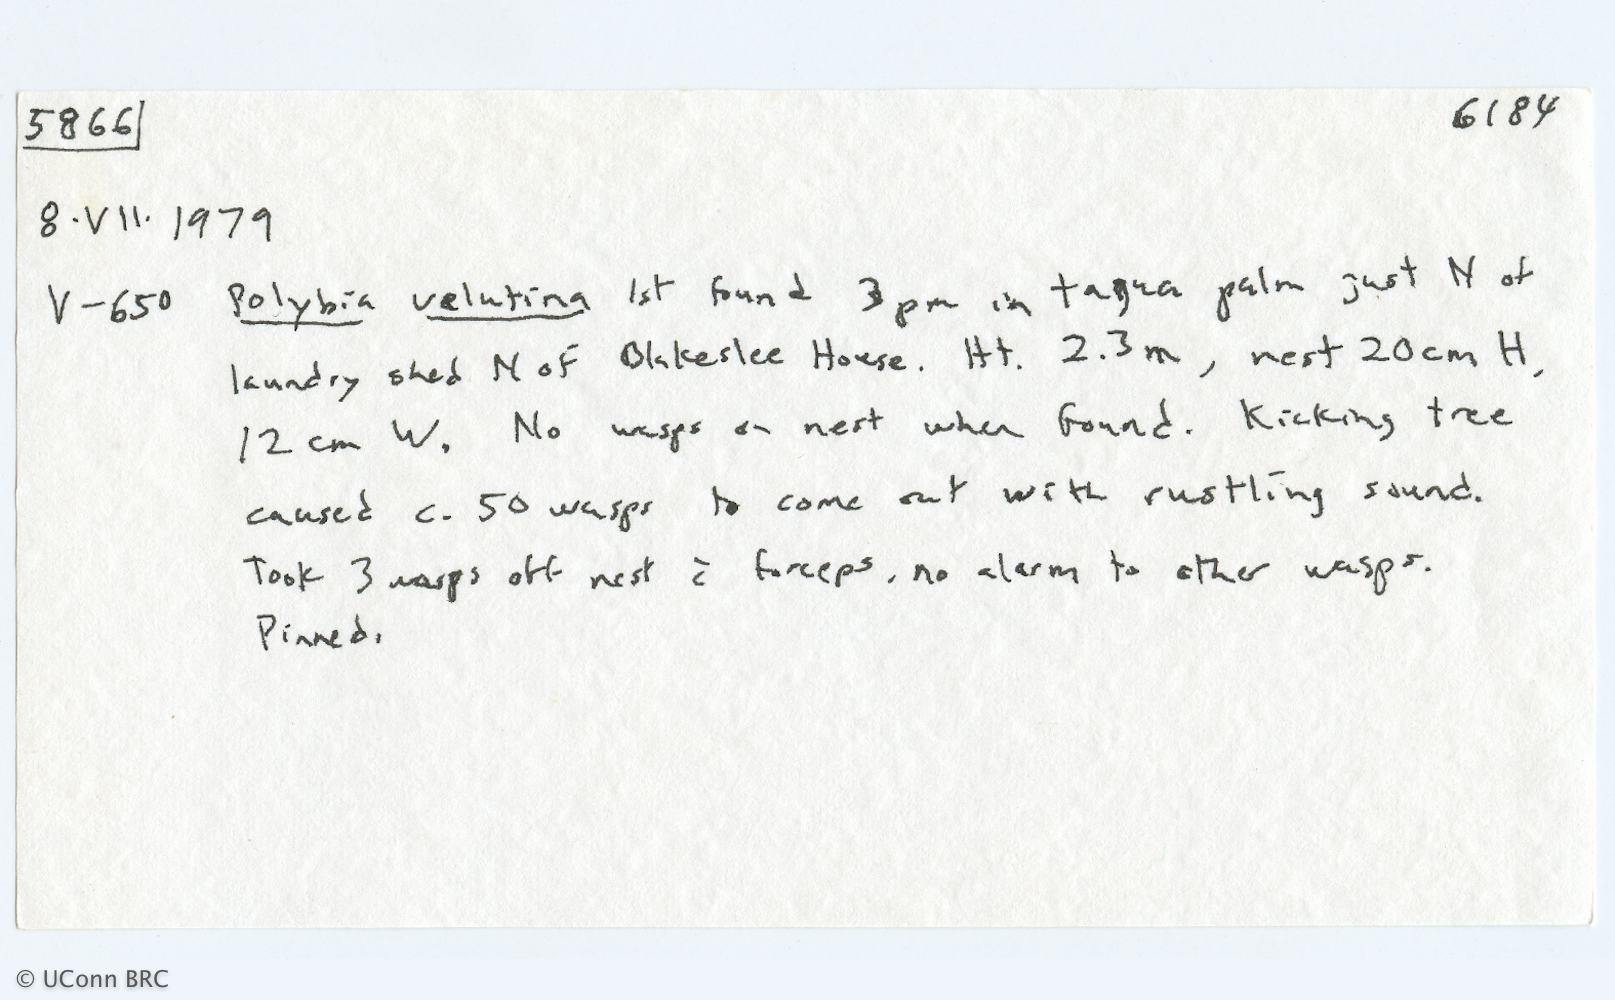 5866 6184
8·VII·1979
V-650 Polybia velutina 1st found 3pm in tagua palm just N of
laundry shed N of Blakeslee House. Ht. 2.3m, nest 20cm H,
12 cm W. No wasps on nest when found. Kicking tree
caused c. 50 wasps to come out with rustling sound.
Took 3 wasps off nest c̄ forceps, no alarm to other wasps.
Pinned.
© UConn BRC